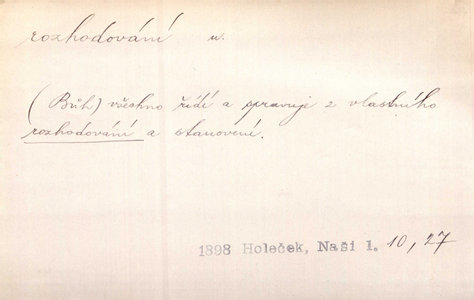 rozhodování n.
(Bůh) všechno řídí a spravuje z vlastního
rozhodování a stanovení.
1898 Holeček, Naši 1. 10,27